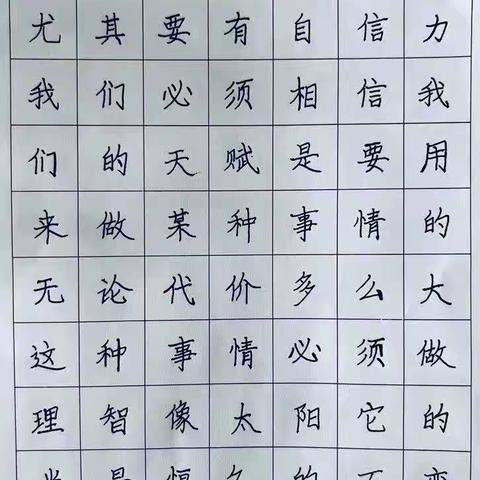 尤其要有自信力
我们必须相信我
们的天赋是要用
来做某种事情的
无论代价多么大
这种事情必须做
理智像太阳它的
光是恒久的不变